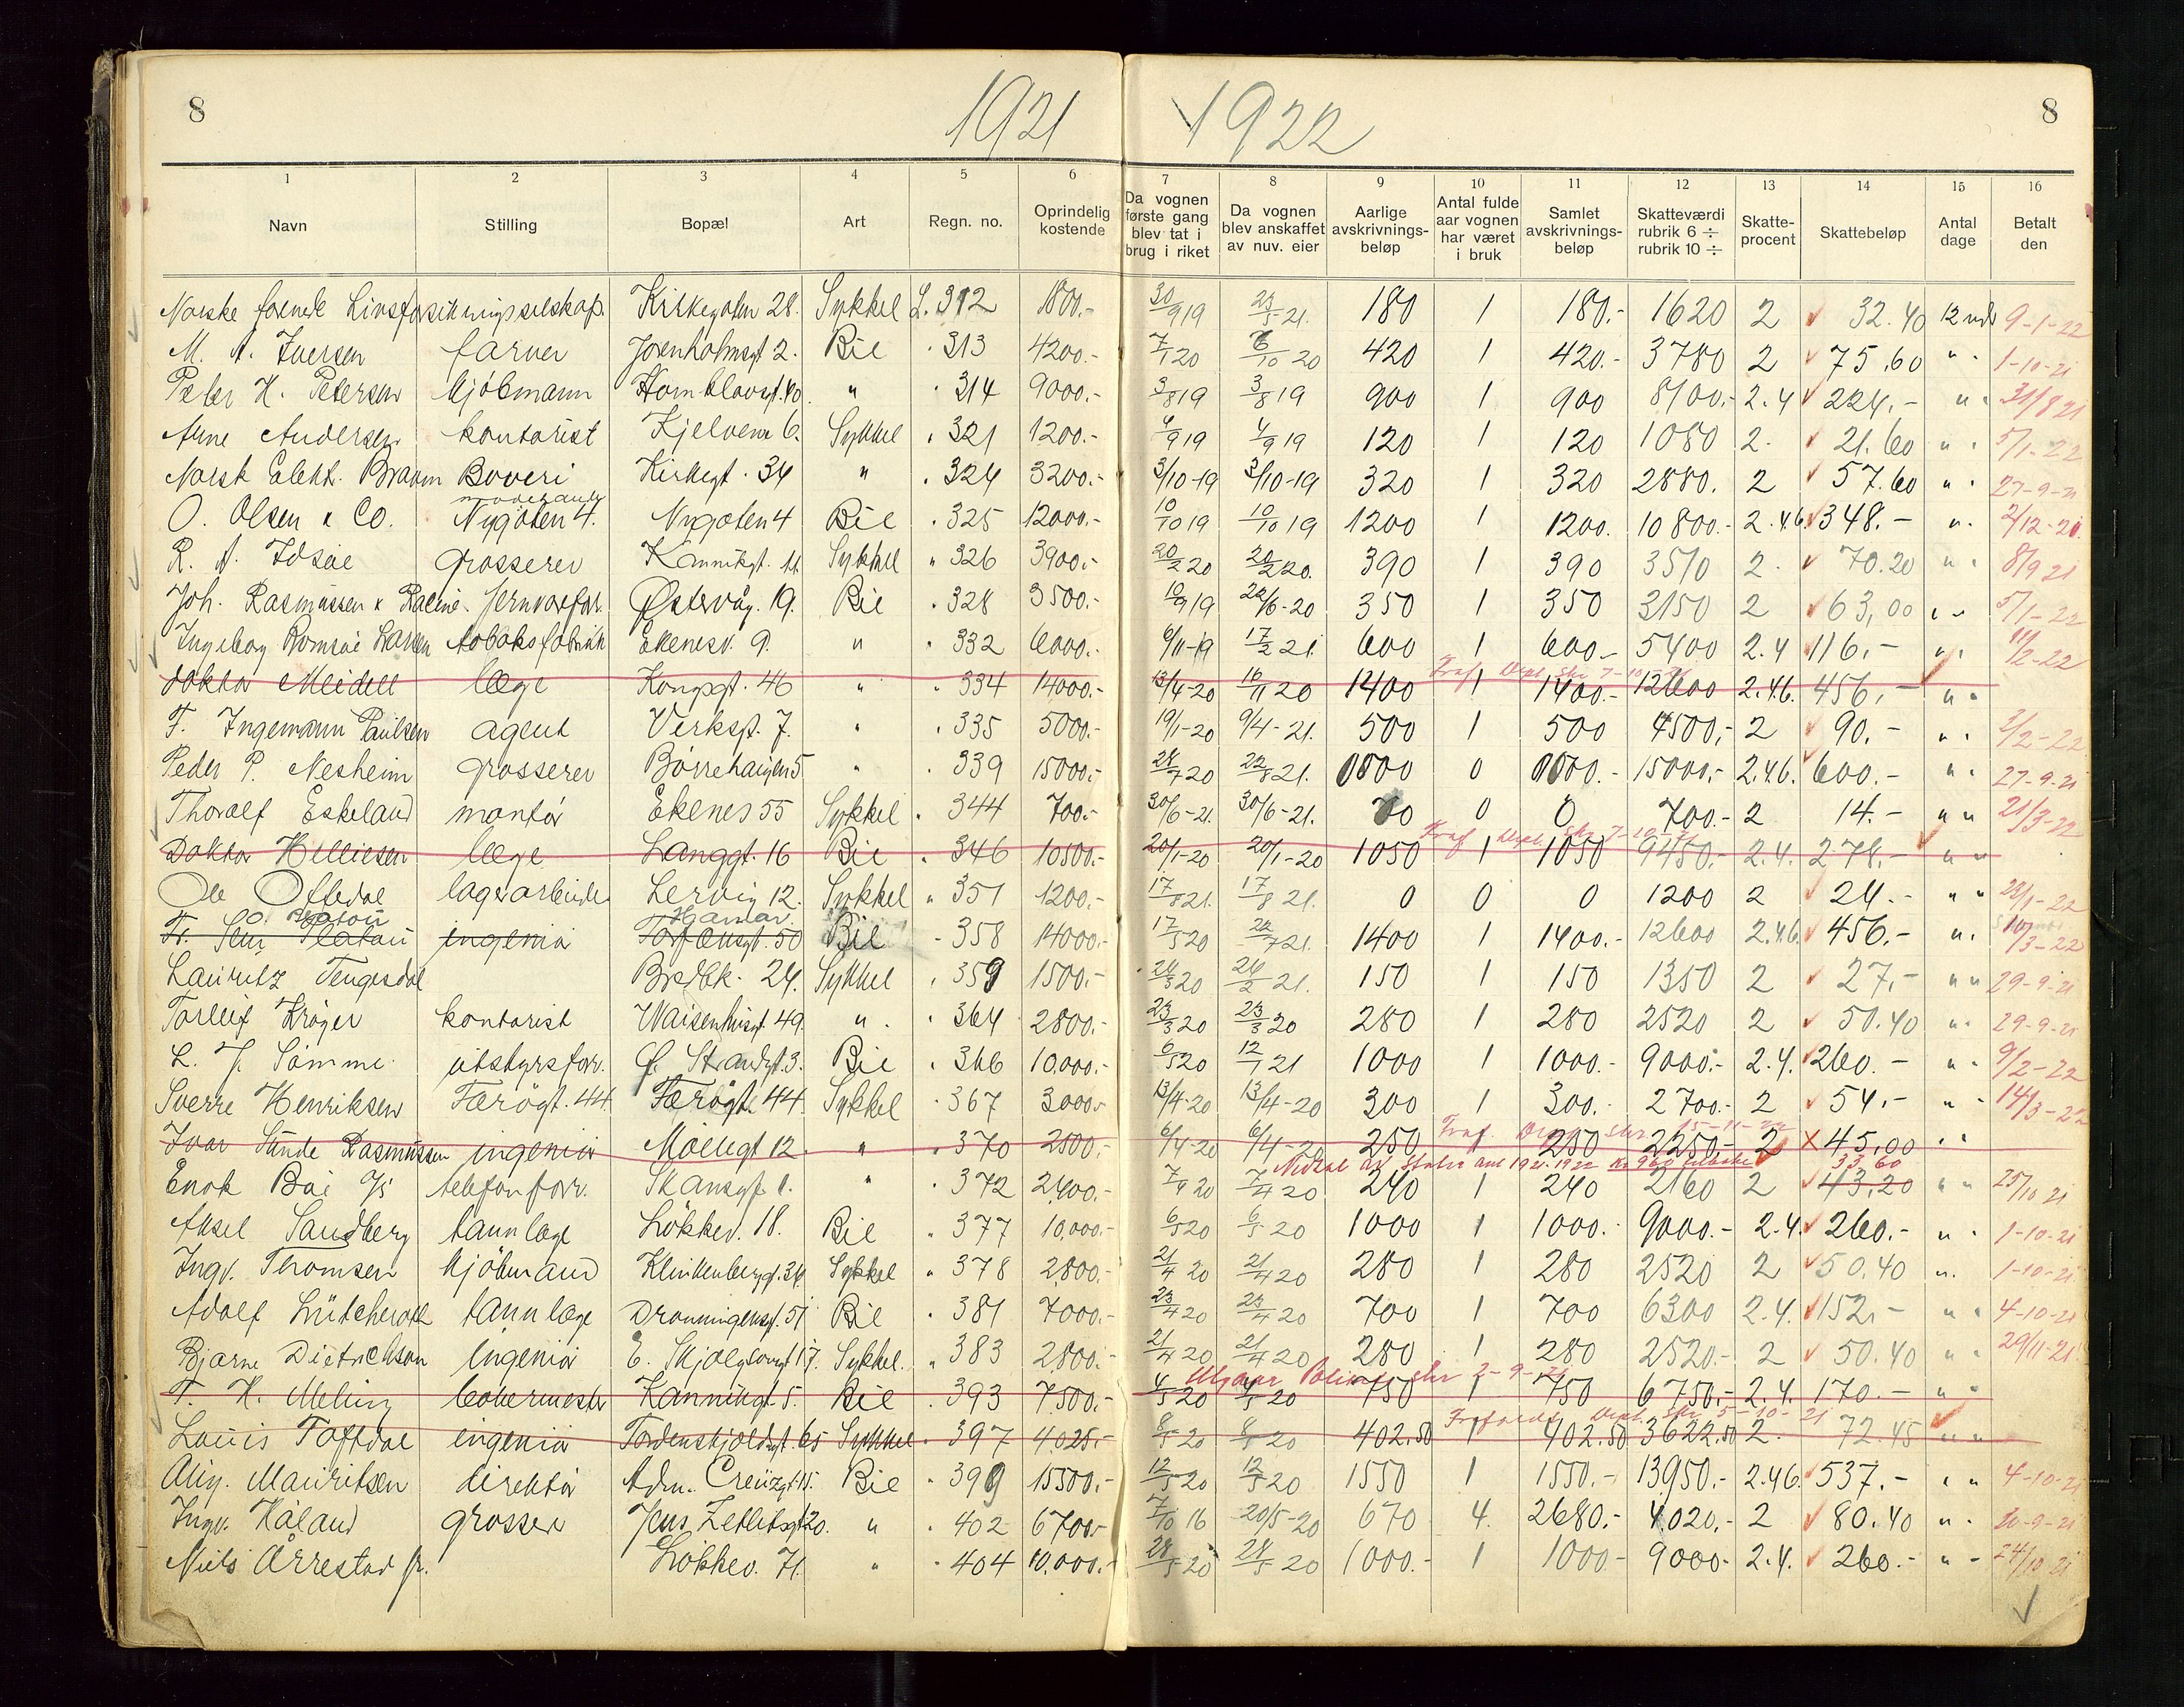 8 1921 1922 8
1 2 3 4 5 6 7 8 9 10 11 12 13 14 15 16
Navn Stilling Bopæl Art Regn. no. Oprindelig kostende Da vognen første gang blev tat i brug i riket Da vognen blev anskaffet av nuv. eier Aarlige avskrivnings-beløp Antal fulde aar vognen har været i bruk Samlet avskrivnings-beløp Skatteværdi rubrik 6 ÷ rubrik 10 ÷ Skatte-procent Skattebeløp Antal dage Betalt den
Norske forenede Livsforsikringsselskap. Kirkegaten 28. Sykkel L. 312 1800.- 30/9 19 23/5-21. 180 1 180.- 1620 2 32.40 12 mdr 9-1-22
M. A. Iversen farver Jorenholmsgt 2. Bil " 313 4200.- 7/1 20 6/10 20 420 1 420.- 3780 2 75.60 " " 1-10-21
Peder H. Petersen kjøbmann Hornklovsgt. 40. " " 314 9000.- 3/8 19 3/8 19 900 1 900 8100.- 2.4 224.- " " 31/8 21
Arne Andersen kontorist Kjelvene 6. Sykkel " 321 1200.- 4/9 19 4/9 19 120 1 120 1080 2. 21.60 " " 5/1-22
Norsk Elekt. Brown Boveri Kirkegt. 34 " " 324 3200.- 3/10-19 3/10-19 320 1 320 2880. 2 57.60 " " 27-9-21
O. Olsen & Co. Nygaten 4. Nygaten 4 Bil " 325 12000.- 10/10 19 10/10 19 1200 1 1200. 10800.- 2.4.6. 348.- " 2/12-21.
R. A. Idsøe grosserer Kannikgt. 11 Sykkel " 326 3900.- 20/2 20 20/2 20. 390 1 390 3510 2. 70.20 " " 8/9 21
Joh. Rasmussen & Racine. Jernvarefor. Østervåg. 19. Bil " 328 3500.- 10/9 19 22/6-20 350 1 350 3150 2 63,00 " " 5/1-22
Ingeborg Romsøe Larsen tobaksfabrikk Ekenesv. 9. " " 332 6000.- 6/11-19 17/2 21. 600 1 600.- 5400 2.4 116.- " " 11/2-22
Fraf. Dept. skr 7-10-21
Doktor Meidell læge Kongsgt. 46 " " 334 14000.- 13/4-20 16/11 20 1400 1 1400.- 12600 2.4.6. 456.- " "
F. Ingemann Paulsen agent Verksgt. 7. " " 335 5000.- 19/1-20 9/4-21. 500 1 500 4500.- 2 90.- " " 3/2-22
Peder P. Nesheim grosserer Børrehaugen 5 " " 339 15000.- 28/7 20 22/8 21. 0 15000.- 2.4.6. 600.- " " 27-9-21
Thoralf Eskeland montør Ekenes 55 Sykkel " 344 700.- 30/6-21. 30/6-21. 70 0 0 700.- 2 14.- " " 21/3-22
Fraf. Dept. skr 7-10-21
Doktor Helliesen læge Langgt. 16 Bil " 346 10500.- 20/1-20 20/1-20 1050 1 1050 9450.- 2.4. 278.- " "
Ole Oftedal lagerarbeider Lervig 12. Sykkel " 351 1200.- 17/8 21. 17/8 21. 0 0 0 1200 2 24.- " " 28/1-22
Fr. Platou ingeniør 50 Bil " 358 14000.- 17/5 20 22/7 21. 1400 1 1400.- 12600 2.4.6. 456.- " " 10/3-22
Lauritz Tengesdal Bredbk. 24. Sykkel " 359 1500.- 24/3 20 24/2 21. 150 1 150 1350 2 27.- " " 29-9-21
Torleif Krøger kontorist Waisenhusgt. 49. " " 364 2800.- 23/3 20 23/3 20 280 1 280 2520 2 50.40 " " 29-9-21
L. J. Sømme utstyrsforr. Ø. Strandgt. 3. Bil " 366 10,000.- 6/5 20 12/1 21 1000 1 1000.- 9000.- 2.4. 260.- " " 9/2-22
Sverre Henriksen Færøgt. 44 Færøgt. 44 Sykkel " 367 3000.- 13/4-20 13/4-20 300 1 300.- 2700.- 2 54.- " " 14/3-22
Fraf. Dept. skr. 15-11-22
Ivar Sunde Rasmussen ingeniør Møllegt 12. " " 370 2500.- 6/4-20 6/4-20 250 1 250 2250- 2 X 45,00 " "
33.60
Enok Bøe A/S telefonforr. Skansegt. 1. " " 372 2,400.- 7/4 20 7/4 20 240 1 240 2160 2 43,20 " " 25/10 21
Aksel Sandberg tannlæge Løkkev. 18. Bil " 377 10,000.- 6/5 20 6/5 20 1000 1 1000.- 9000.- 2.4. 260.- " " 1-10-21
Ingv. Thomsen kjøbmand Klinkenberggt. 34 Sykkel " 378 2,800.- 21/4 20 21/4 20 280 1 280 2520 2 50.40 " 1-10-21
Adolf Lütcherath tannlæge Dronningensgt. 51 Bil " 381 7000.- 23/4 20 23/4 20 700 1 700 6300 2.4. 152.- " " 4-10-21
Bjarne Dietrichson ingeniør E. Skjalgsongt 17. Sykkel. " 383 2800.- 21/4 20 21/4 20 280 1 280 2520.- 2 50.40 " " 29/11-21.
Utgaar Politiets skr 2-9-21
T. H. Meling Kannikgt 5. Bil " 393 7,500.- 4/5 20 4/5 20 750 1 750 6750.- 2.4. 170.- " "
Frafaldt Dept. skr. 5-10-21
Louis Toftdal ingeniør Tordenskjoldsgt. 65 Sykkel " 397 4,025.- 8/5 20 8/5 20 402.50 1 402.50 3622.50 2. 72.45 " "
Alig. Mauritsen direktør Adm. Creuzgt. 15. Bil " 399 15500.- 12/5 20 12/5 20 1550 1 1550.- 13950.- 2.4.6. 537.- " " 4-10-21
Ingv. Håland grosserer Jens Zetlitsgt 20. " " 402 6700- 7/10 16 20/5-20 670 4. 2680.- 4.020.- 2 80.40 " " 20-9-21
Niels Årrestad jr. Løkkev. 71. " " 404 10,000.- 28/5 20 28/5 20 1000.- 1 1000- 9000- 2.4. 260.- " - 24/10 21